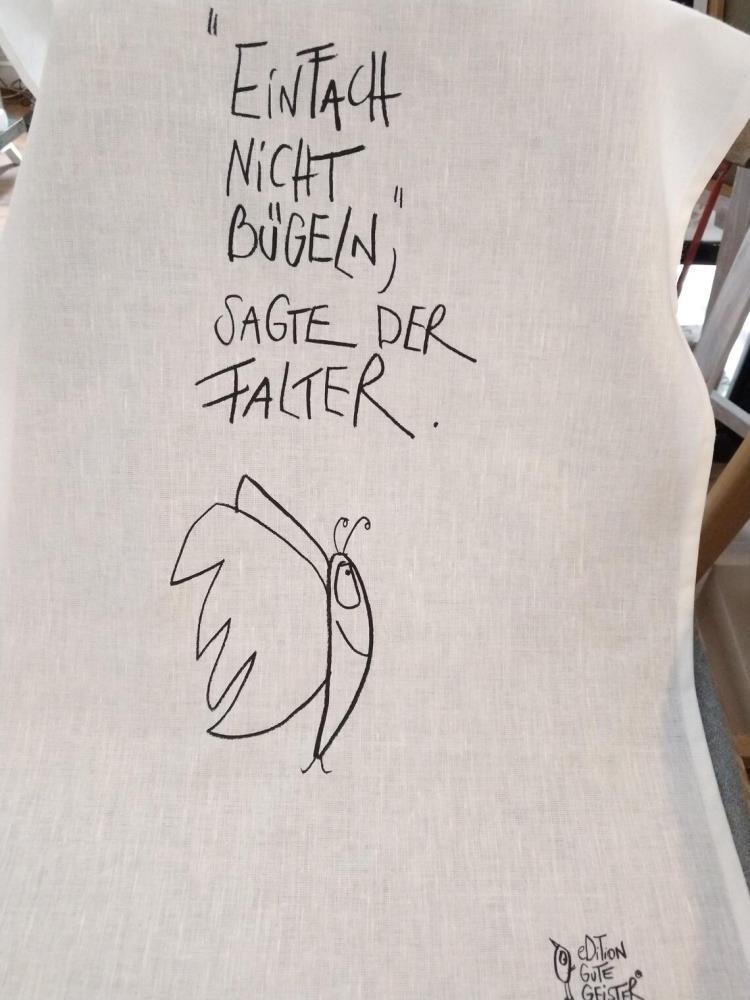 "EINFACH
NICHT
BÜGELN,"
SAGTE DER
FALTER.
eDITION
GUTE
GEISTER®